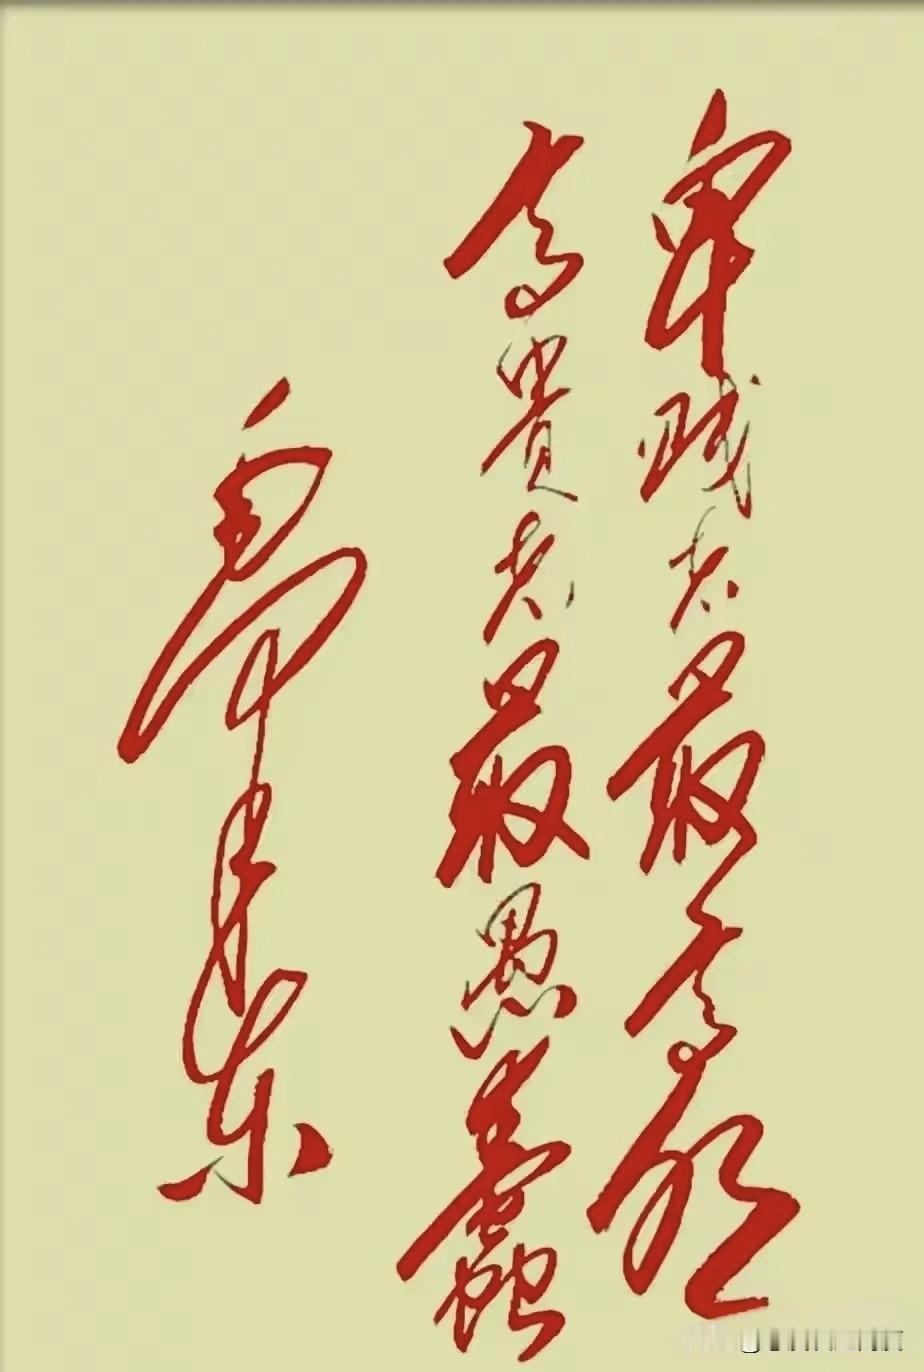 卑贱者最高明
高貴者最愚蠢
毛泽东